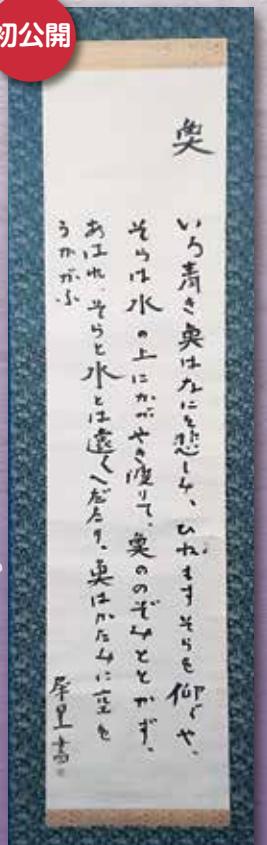 初公開
魚
いろ青き魚はなにを悲しみ、ひねもすそらを仰ぐや、
そらは水の上にかがやき渡りて、魚ののぞみととかず、
あはれ、そらと水とは遠くへだたり、魚はかたみに空を
うかがふ
犀星書